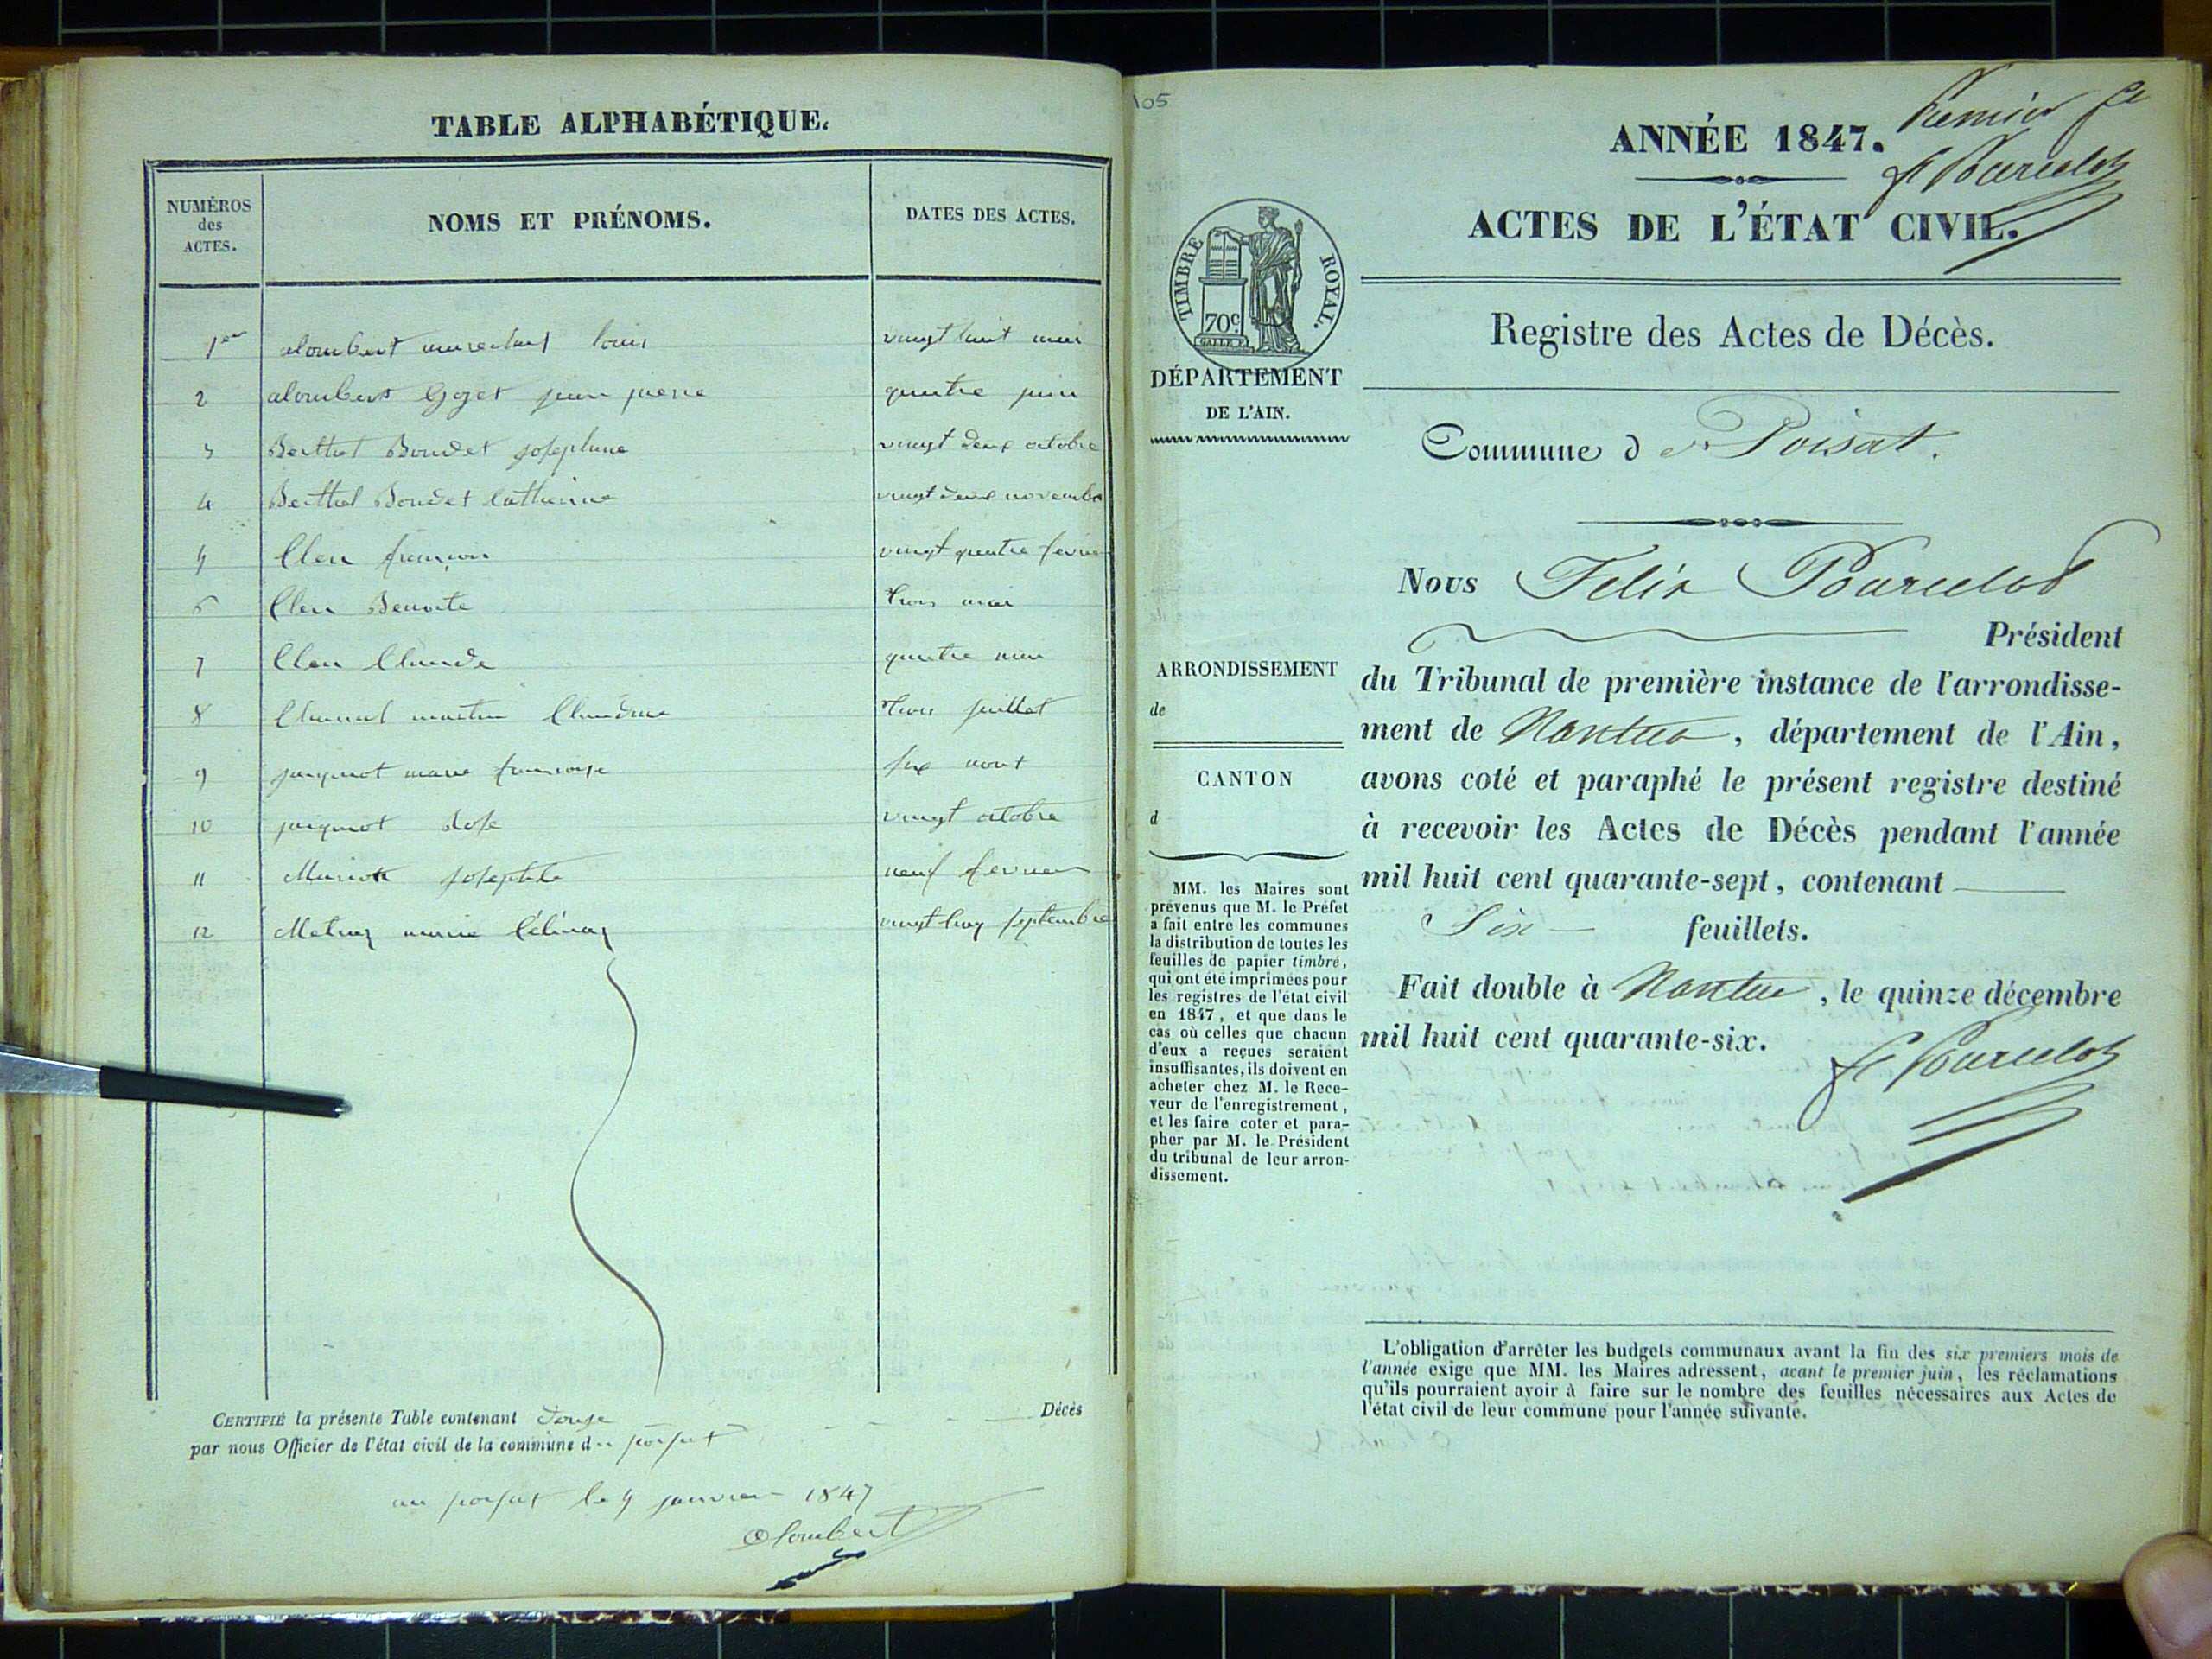 TABLE ALPHABÉTIQUE.
NUMÉROS
des
ACTES.
NOMS ET PRÉNOMS.
DATES DES ACTES.
1er alombert louis vingt huit mai
2 alombert Goget jean pierre quatre juin
3 Berthet Bondet josephine vingt deux octobre
4 Berthet Bondet Catherine vingt deux novembre
5 Clen françois vingt quatre fevrier
6 Clen Benoite trois mai
7 Clen Claude quatre mai
8 martin Claudine trois juillet
9 jacquiot marie françoise six aout
10 jacquiot Rose vingt octobre
11 josephte neuf fevrier
12 marie vingt septembre
CERTIFIÉ la présente Table contenant douze Décès
par nous Officier de l'état civil de la commune du poisat
au poisat le 4 janvier 1847
Alombert
105
ANNÉE 1847.
Premier
F Bourcelot
ACTES DE L'ÉTAT CIVIL.
TIMBRE ROYAL.
70c
DÉPARTEMENT
DE L'AIN.
Registre des Actes de Décès.
Commune d u Poisat.
Nous Felix Bourcelot
Président
du Tribunal de première instance de l'arrondisse-
ment de Nantua, département de l'Ain,
avons coté et paraphé le présent registre destiné
à recevoir les Actes de Décès pendant l'année
mil huit cent quarante-sept, contenant
Six feuillets.
Fait double à Nantua, le quinze décembre
mil huit cent quarante-six.
F Bourcelot
ARRONDISSEMENT
de
CANTON
d
MM. les Maires sont
prévenus que M. le Préfet
a fait entre les communes
la distribution de toutes les
feuilles de papier timbré,
qui ont été imprimées pour
les registres de l'état civil
en 1847, et que dans le
cas où celles que chacun
d'eux a reçues seraient
insuffisantes, ils doivent en
acheter chez M. le Rece-
veur de l'enregistrement,
et les faire coter et para-
pher par M. le Président
du tribunal de leur arron-
dissement.
L'obligation d'arrêter les budgets communaux avant la fin des six premiers mois de
l'année exige que MM. les Maires adressent, avant le premier juin, les réclamations
qu'ils pourraient avoir à faire sur le nombre des feuilles nécessaires aux Actes de
l'état civil de leur commune pour l'année suivante.